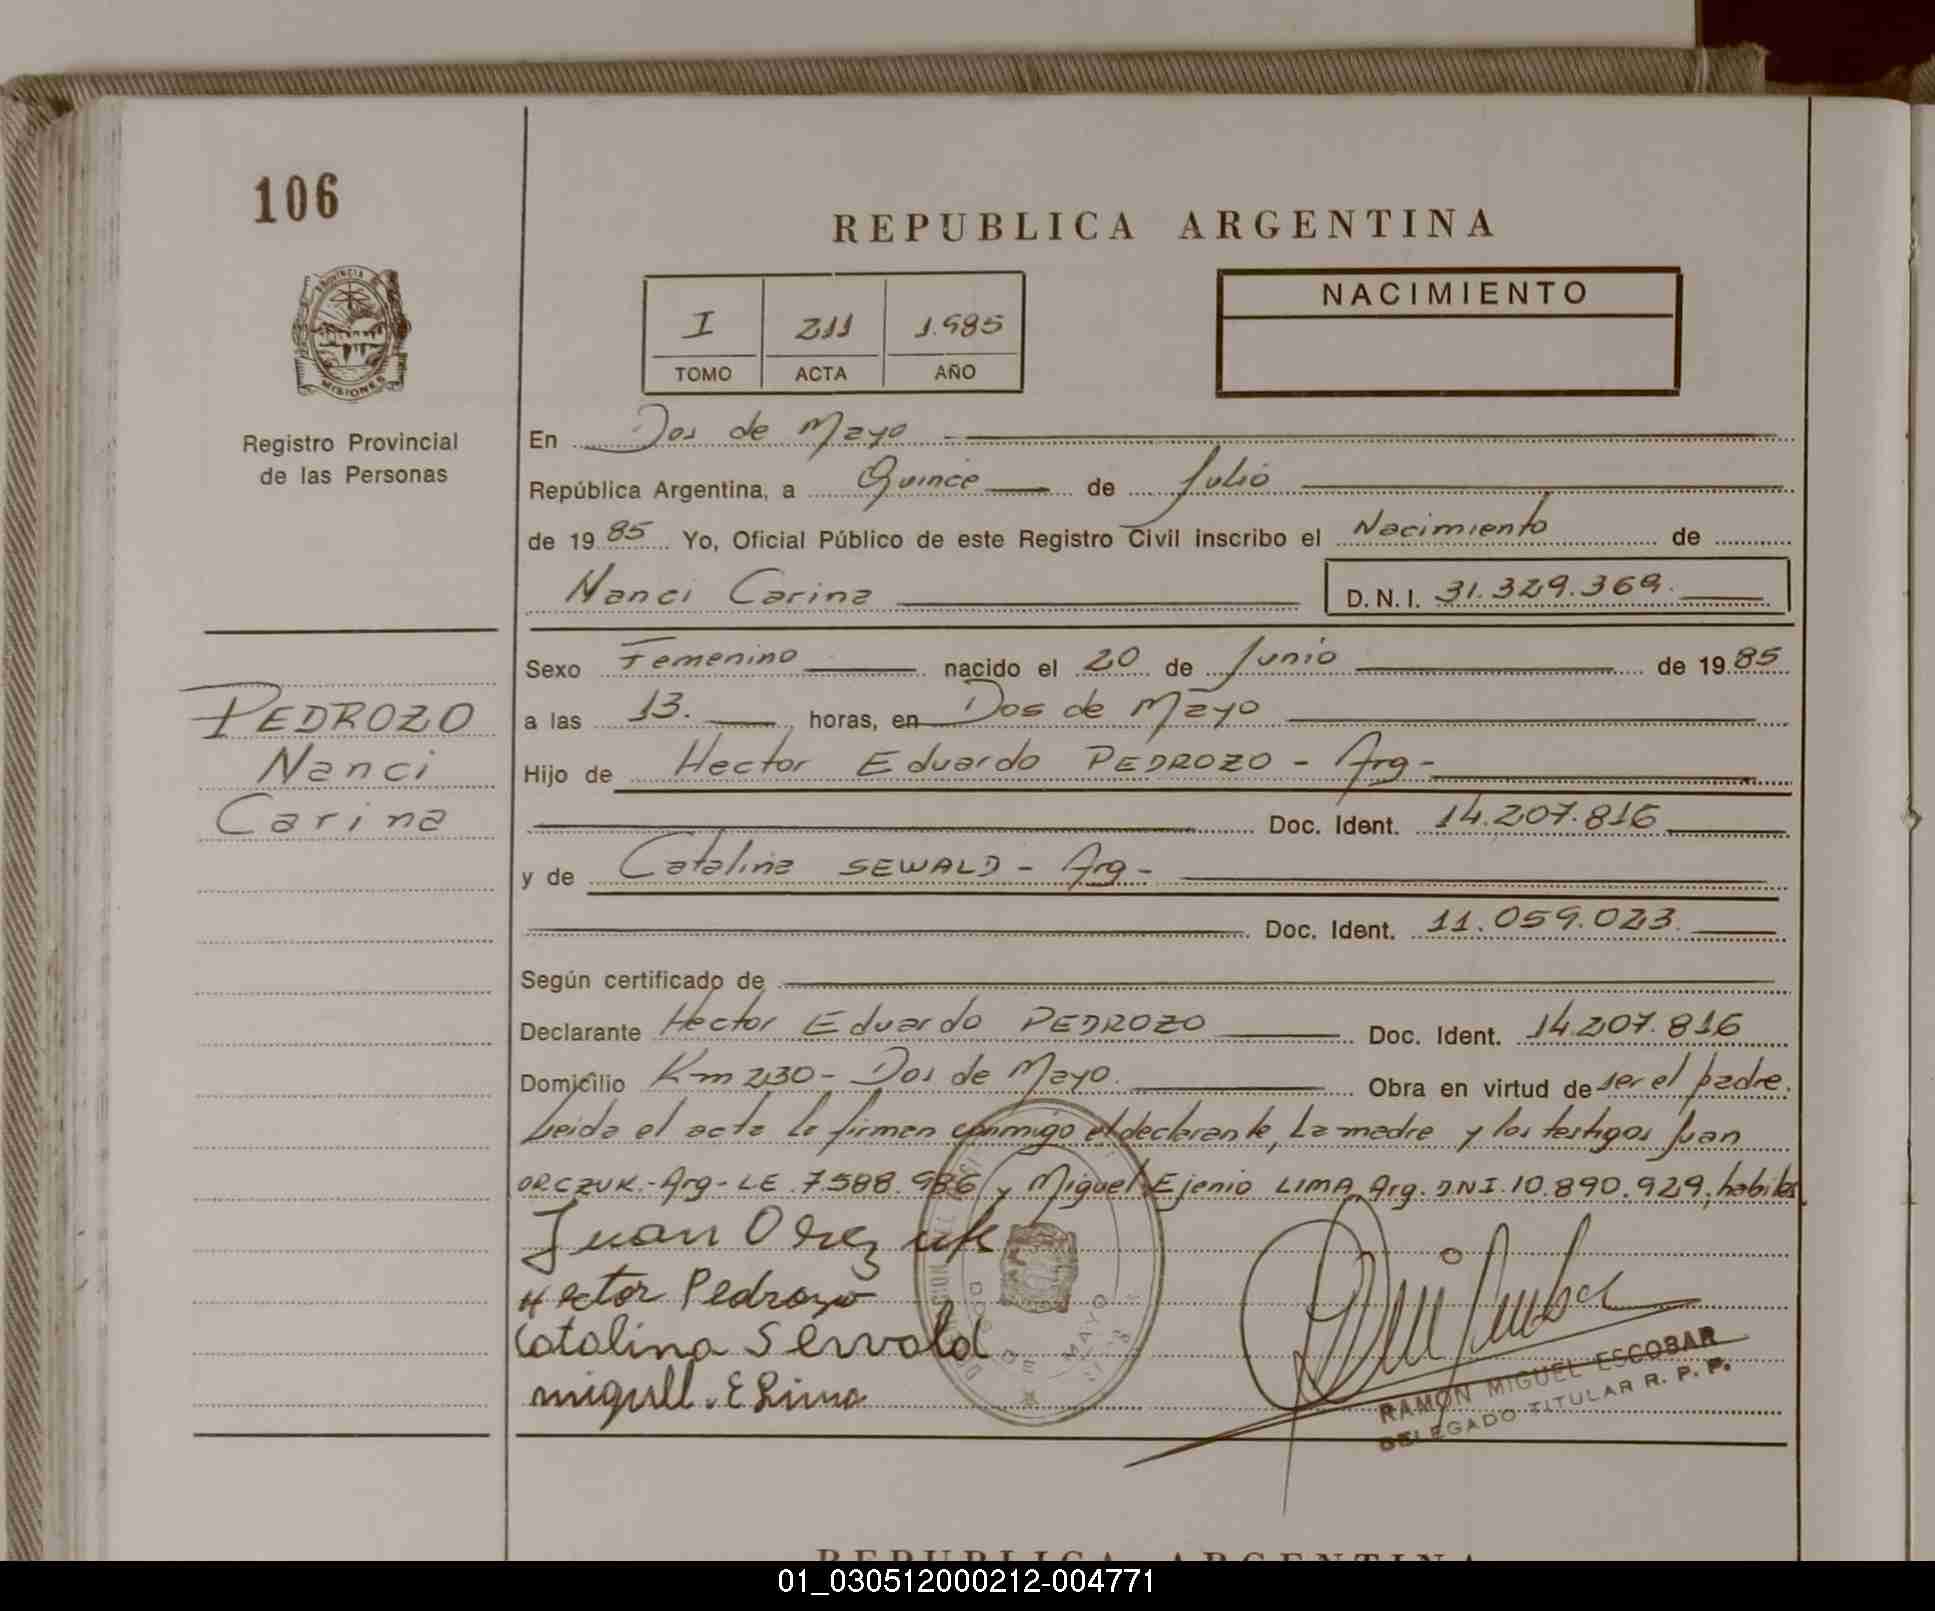 106
REPUBLICA ARGENTINA
PROVINCIA DE
MISIONES
Registro Provincial
de las Personas
I 211 1.985
TOMO ACTA AÑO
NACIMIENTO
En Dos de Mayo
República Argentina, a Quince de Julio
de 19 85 Yo, Oficial Público de este Registro Civil inscribo el Nacimiento de
Nanci Carina D.N.I. 31.329.369.
Sexo Femenino nacido el 20 de Junio de 19 85
a las 13. horas, en Dos de Mayo
Hijo de Hector Eduardo PEDROZO - Arg -
Doc. Ident. 14.207.816
y de Catalina SEWALD - Arg -
Doc. Ident. 11.059.023.
Según certificado de
Declarante Hector Eduardo PEDROZO Doc. Ident. 14.207.816
Domicilio Km 230 - Dos de Mayo. Obra en virtud de ser el padre.
Leida el acta la firman conmigo el declarante, La madre y los testigos Juan
ORCZUK.-Arg-LE.7.588.986 y Miguel Ejenio LIMA, Arg. DNI.10.890.929, habiles
PEDROZO
Nanci
Carina
Juan Orczuk
Hector Pedrozo
Catalina Servald
miguell. E Lima
DOS DE MAYO
RAMON MIGUEL ESCOBAR
DELEGADO TITULAR R. P. P.
REPUBLICA ARGENTINA
01_030512000212-004771